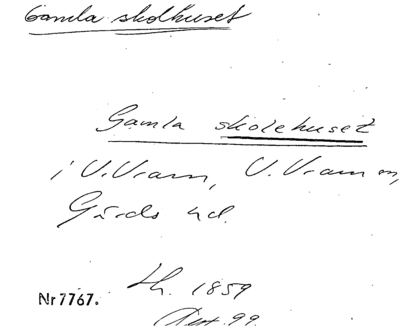 Gamla skolhuset
Gamla skolehuset
i V. Vram, V. Vram sn,
Gärds hd.
1859
Nr 7767.
99.